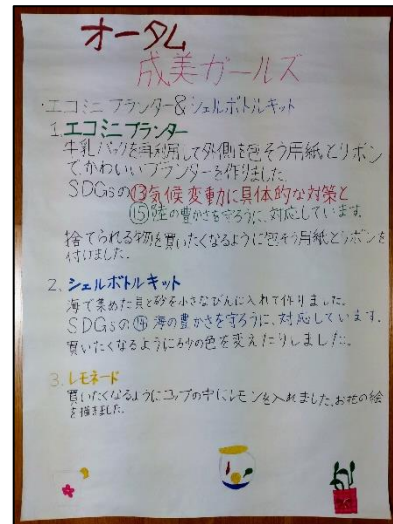 オータム
成美ガールズ
・エコミニプランター&シェルボトルキット
1.エコミニプランター
牛乳パックを再利用して外側を包そう用紙とリボン
で、かわいいプランターを作りました。
SDGsの⑬気候変動に具体的な対策と
⑮陸の豊かさを守ろうに、対応しています。
捨てられる物を買いたくなるように包そう用紙とリボンを
付けました。
2.シェルボトルキット
海で集めた貝と砂を小さなびんに入れて作りました。
SDGsの⑭海の豊かさを守ろうに、対応しています。
買いたくなるように砂の色を変えたりしました。
3.レモネード
買いたくなるようにコップの中にレモンを入れました。お花の絵
を描きました。